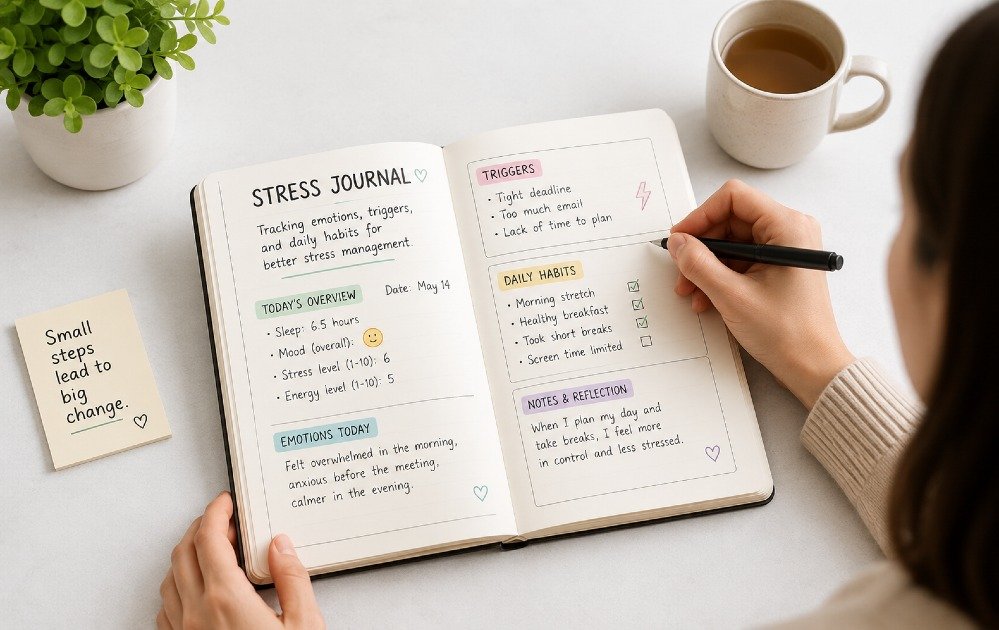 STRESS JOURNAL
Tracking emotions, triggers,
and daily habits for
better stress management.
TODAY'S OVERVIEW
Date: May 14
• Sleep: 6.5 hours
• Mood (overall):
• Stress level (1-10): 6
• Energy level (1-10): 5
EMOTIONS TODAY
Felt overwhelmed in the morning,
anxious before the meeting,
calmer in the evening.
TRIGGERS
• Tight deadline
• Too much email
• Lack of time to plan
DAILY HABITS
• Morning stretch
• Healthy breakfast
• Took short breaks
• Screen time limited
NOTES & REFLECTION
When I plan my day and
take breaks, I feel more
in control and less stressed.
Small
steps
lead to
big
change.